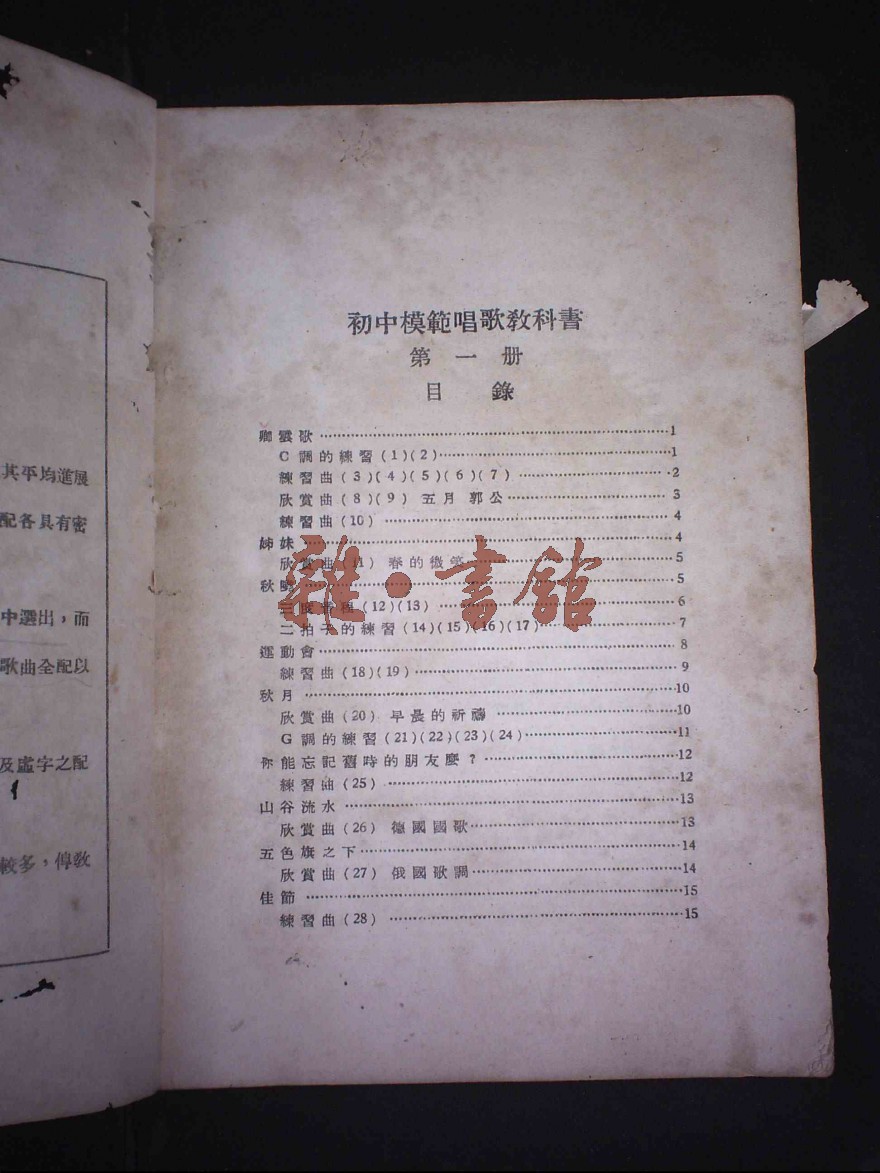 其平均進展
配各具有密
中選出，而
歌曲全配以
及虛字之配
較多，傳教
初中模範唱歌教科書
第一册
目錄
卿雲歌 1
C調的練習(1)(2) 1
練習曲(3)(4)(5)(6)(7) 2
欣賞曲(8)(9) 五月 郭公 3
練習曲(10) 4
姊妹 4
欣賞曲(11) 春的微笑 5
秋 5
三度音程(12)(13) 6
二拍子的練習(14)(15)(16)(17) 7
運動會 8
練習曲(18)(19) 9
秋月 10
欣賞曲(20) 早晨的祈禱 10
G調的練習(21)(22)(23)(24) 11
你能忘記舊時的朋友麼？ 12
練習曲(25) 12
山谷流水 13
欣賞曲(26) 德國國歌 13
五色旗之下 14
欣賞曲(27) 俄國歌調 14
佳節 15
練習曲(28) 15
雜·書館